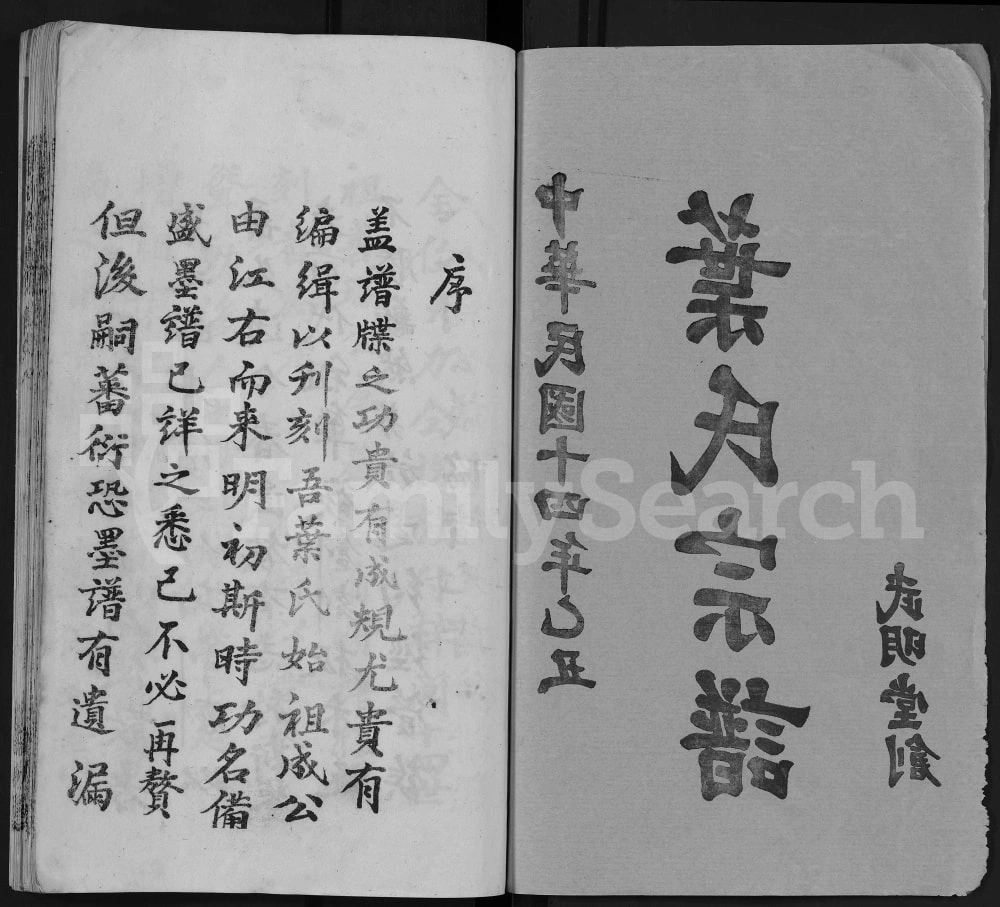 中華民國十四年乙丑
葉氏宗譜
武明堂創
序
盖譜牒之功貴有成規尤貴有
編緝以刋刻吾葉氏始祖成公
由江右而来明初斯時功名備
盛墨譜已詳之悉已不必再贅
但後嗣蕃衍恐墨譜有遺漏
FamilySearch